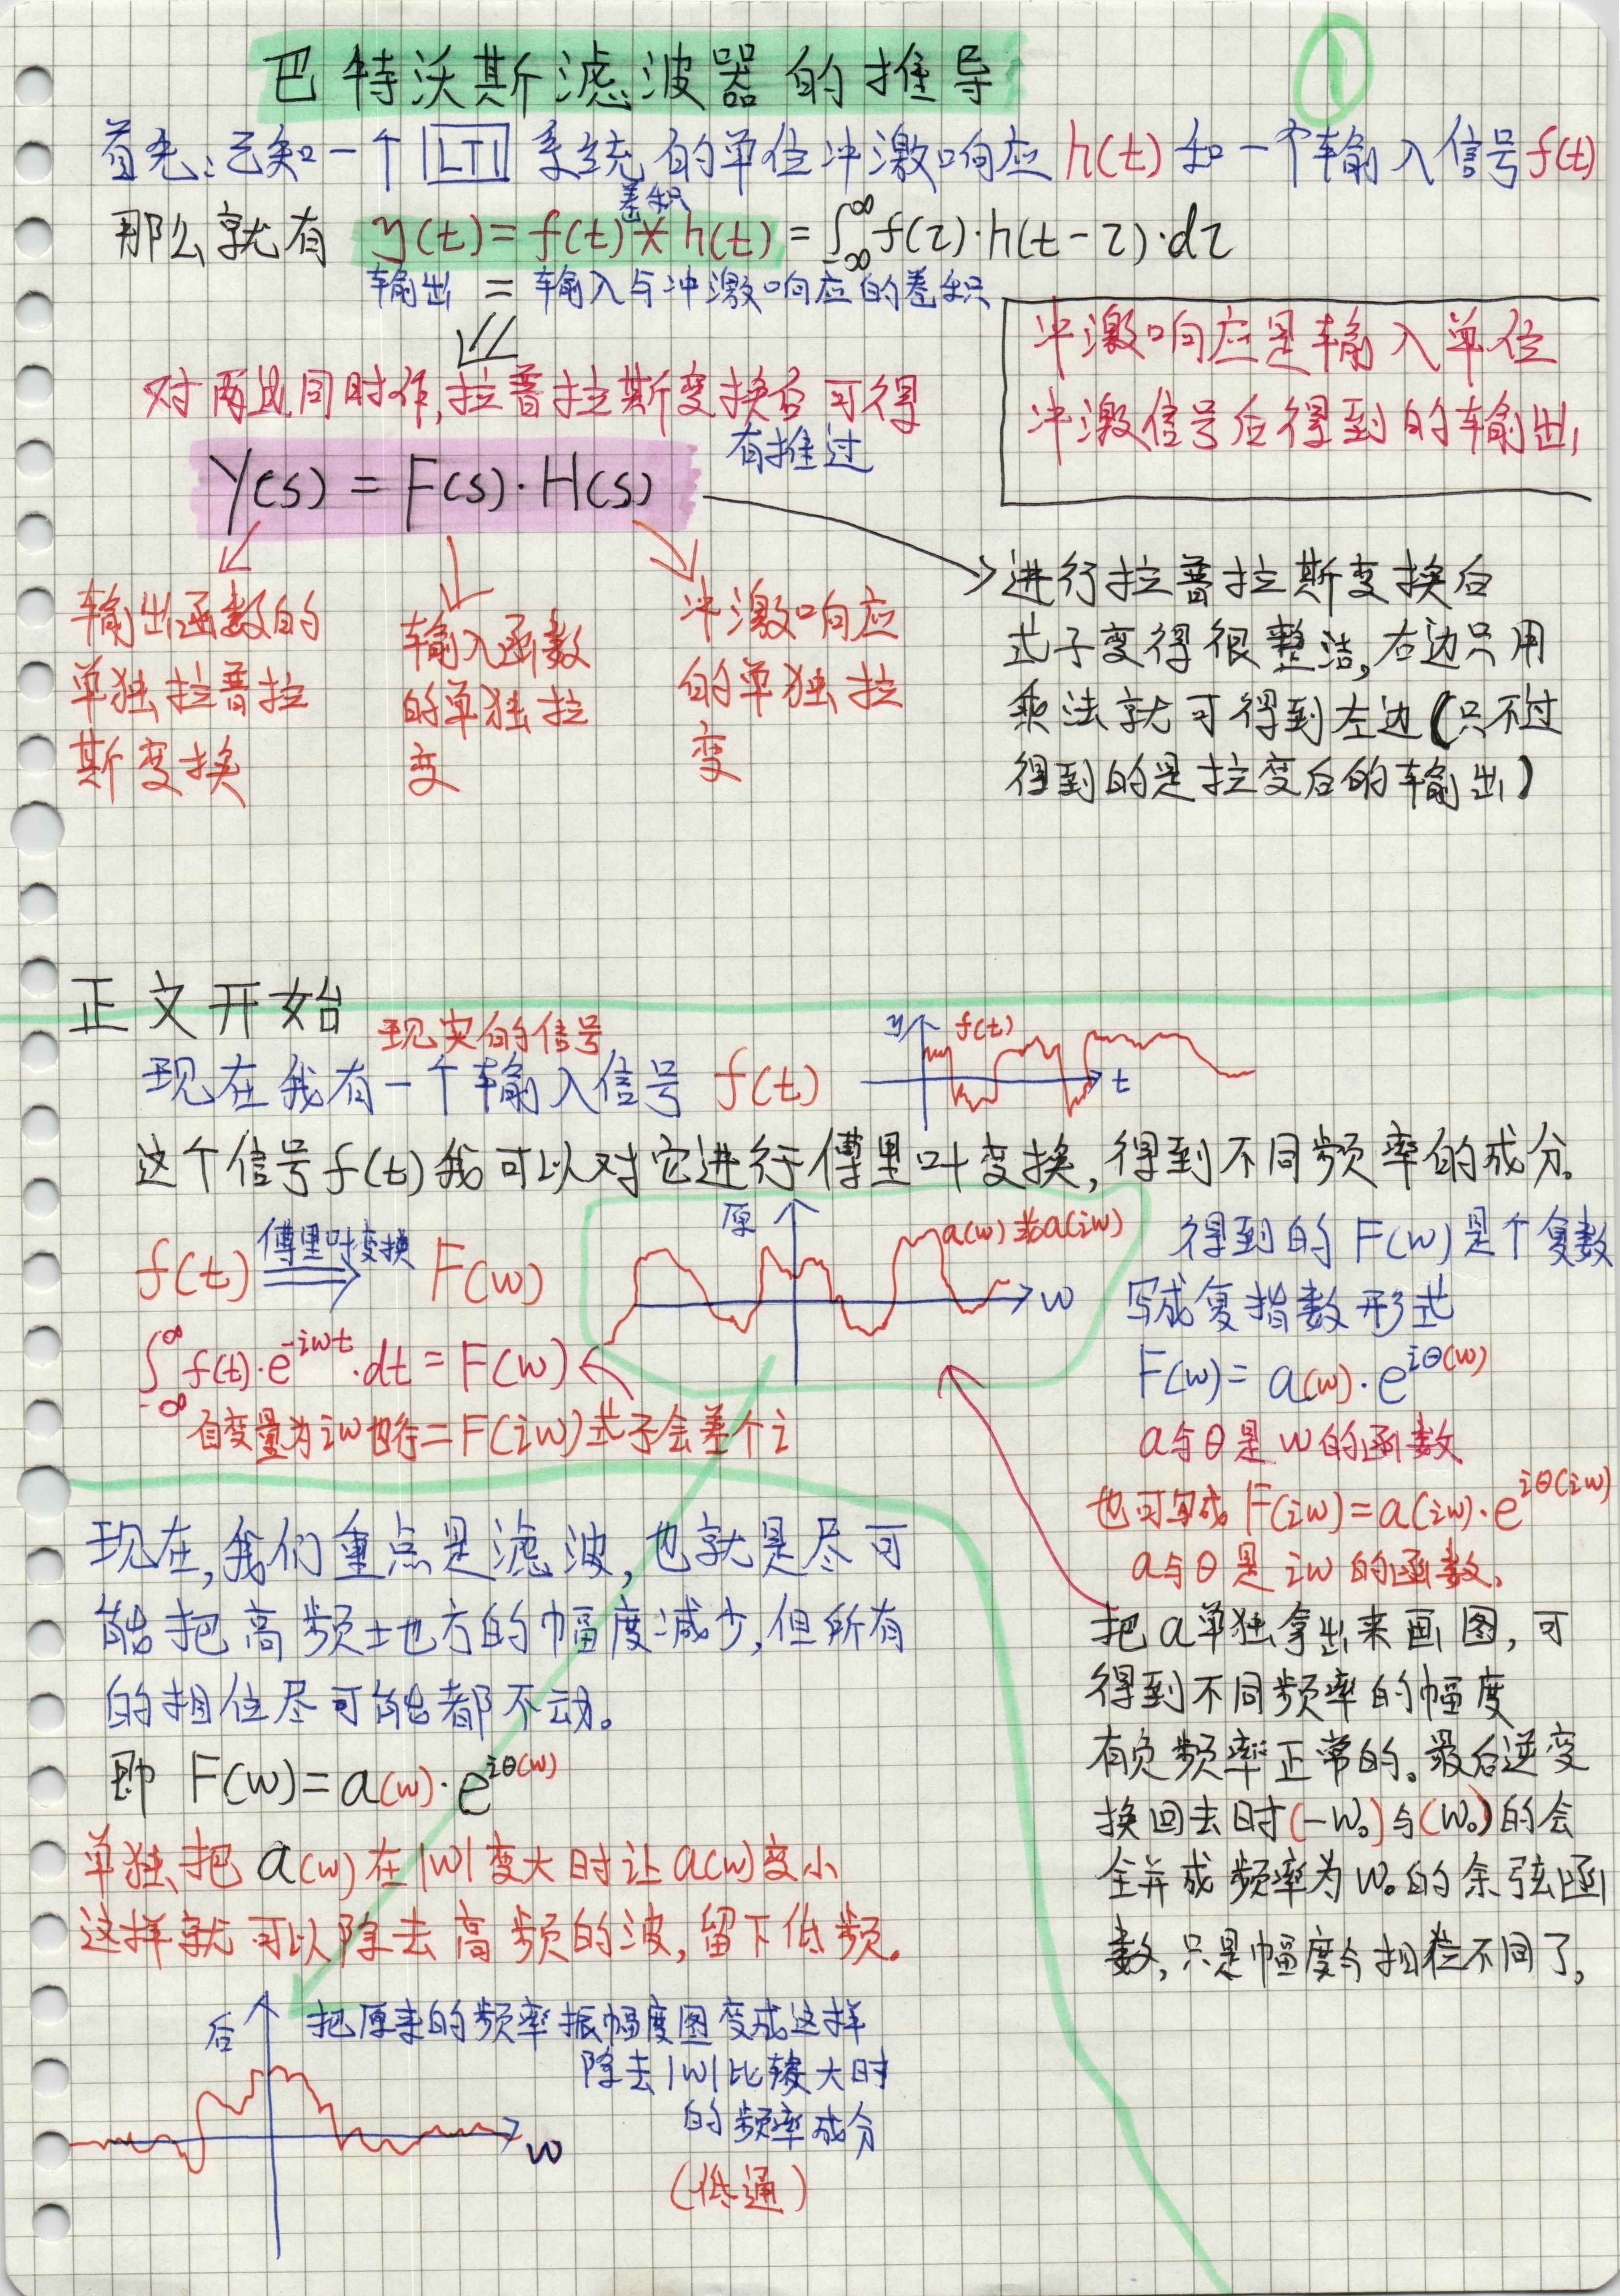 巴特沃斯滤波器的推导
①
首先:已知一个 LTI 系统的单位冲激响应 h(t) 和一个输入信号 f(t)
卷积
那么就有 y(t) = f(t) * h(t) = ∫_{-∞}^{∞} f(τ)·h(t-τ)·dτ
输出 = 输入与冲激响应的卷积
冲激响应是输入单位
冲激信号后得到的输出
对两边同时作拉普拉斯变换后可得
有推过
Y(s) = F(s)·H(s)
输出函数的
单独拉普拉
斯变换
输入函数
的单独拉
变
冲激响应
的单独拉
变
进行拉普拉斯变换后
式子变得很整洁,右边只用
乘法就可得到左边(只不过
得到的是拉变后的输出)
正文开始
现实的信号
现在我有一个输入信号 f(t)
y f(t)
t
这个信号f(t)我可以对它进行傅里叶变换,得到不同频率的成分。
f(t) 傅里叶变换 F(w)
原
a(w) 或a(iw)
w
∫_{-∞}^{∞} f(t)·e^{-iwt}·dt = F(w)
自变量为iw也行=F(iw)式子会差个i
得到的F(w)是个复数
写成复指数形式
F(w) = a(w)·e^{iθ(w)}
a与θ是w的函数
也可写成 F(iw)=a(iw)·e^{iθ(iw)}
a与θ是iw的函数.
把a单独拿出来画图,可
得到不同频率的幅度
有负频率正常的。最后逆变
换回去时(-w₀)与(w₀)的会
合并成频率为w₀的余弦函
数,只是幅度与相位不同了.
现在,我们重点是滤波,也就是尽可
能把高频地方的幅度减少,但所有
的相位尽可能都不动。
即 F(w)=a(w)·e^{iθ(w)}
单独把a(w)在|w|变大时让a(w)变小
这样就可以除去高频的波,留下低频.
后
把原来的频率振幅度图变成这样
除去|w|比较大时
的频率成分
(低通)
w